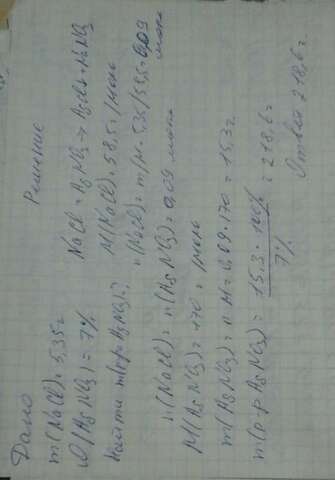 Дано
m(NaCl)=5,35г
ω(AgNO3)=7%
Найти m(р-р AgNO3)?
Решение
NaCl + AgNO3 → AgCl + NaNO3
M(NaCl)=58,5г/моль
n(NaCl)=m/M=5,35/58,5=0,09 моль
n(NaCl)=n(AgNO3)=0,09 моль
M(AgNO3)=170 г/моль
m(AgNO3)=n·M=0,09·170=15,3г
m(р-р AgNO3)=15,3·100%/7%=218,6г
Ответ 218,6г